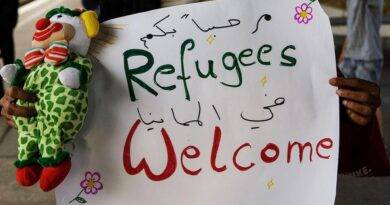 مرحباً بكم
Refugees
في المانيا
Welcome